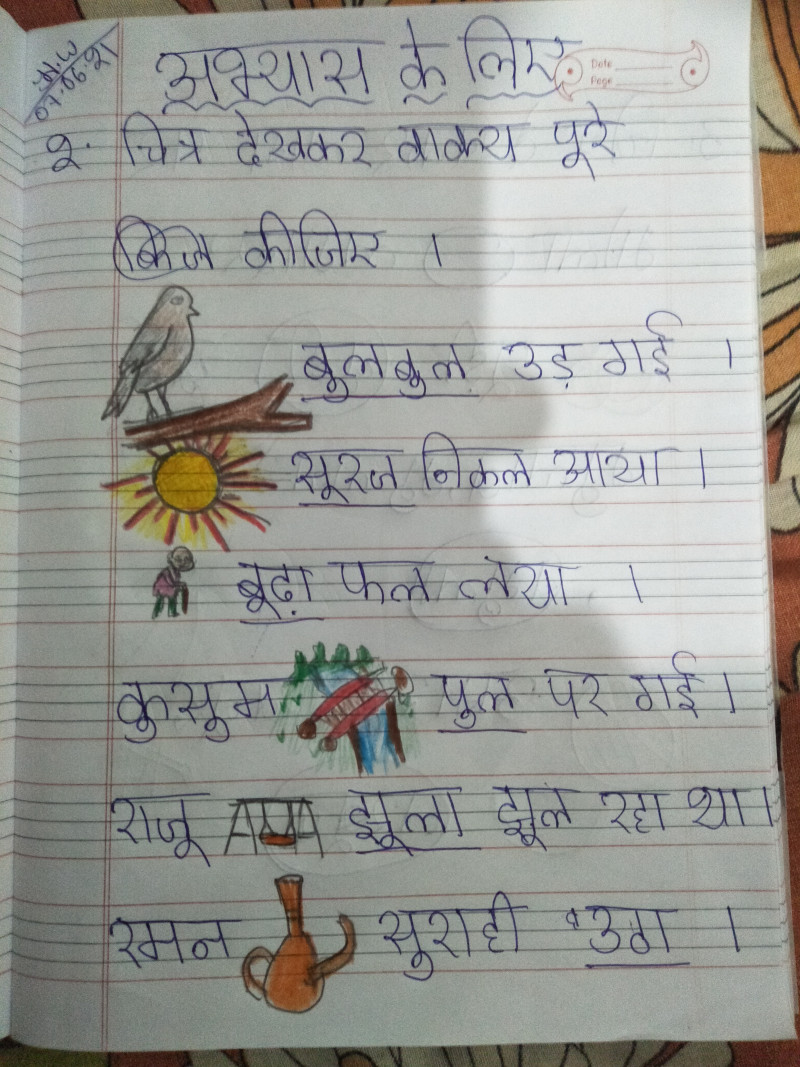 H.W
07.06.21
अभ्यास के लिए
Date
Page
2. चित्र देखकर वाक्य पूरे
कीजिए ।
बुलबुल उड़ गई ।
सूरज निकल आया ।
बूढ़ा फल लेया ।
कुसुम पुल पर गई ।
राजू झूला झूल रहा था ।
रमन सुराही उठा ।